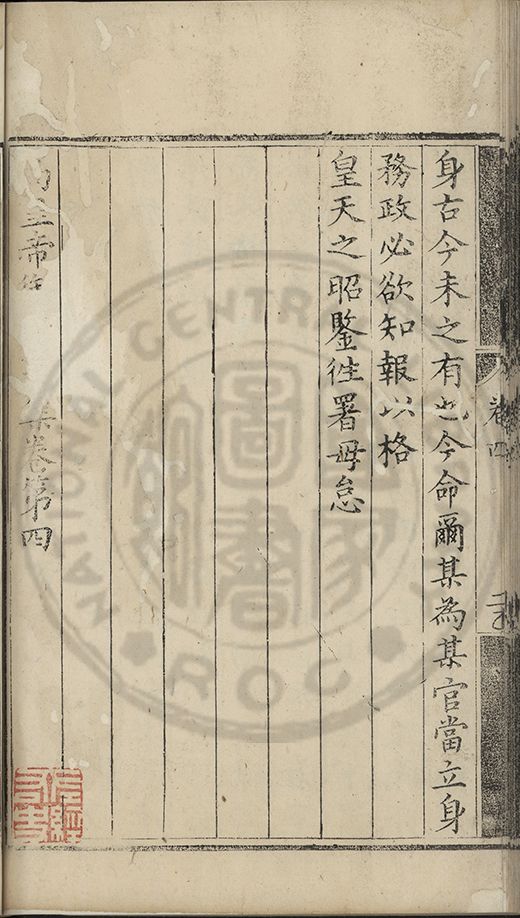 卷四
身古今未之有也今命爾某為某官當立身
務政必欲知報以格
皇天之昭鑒往署毋怠
帝
集卷第四